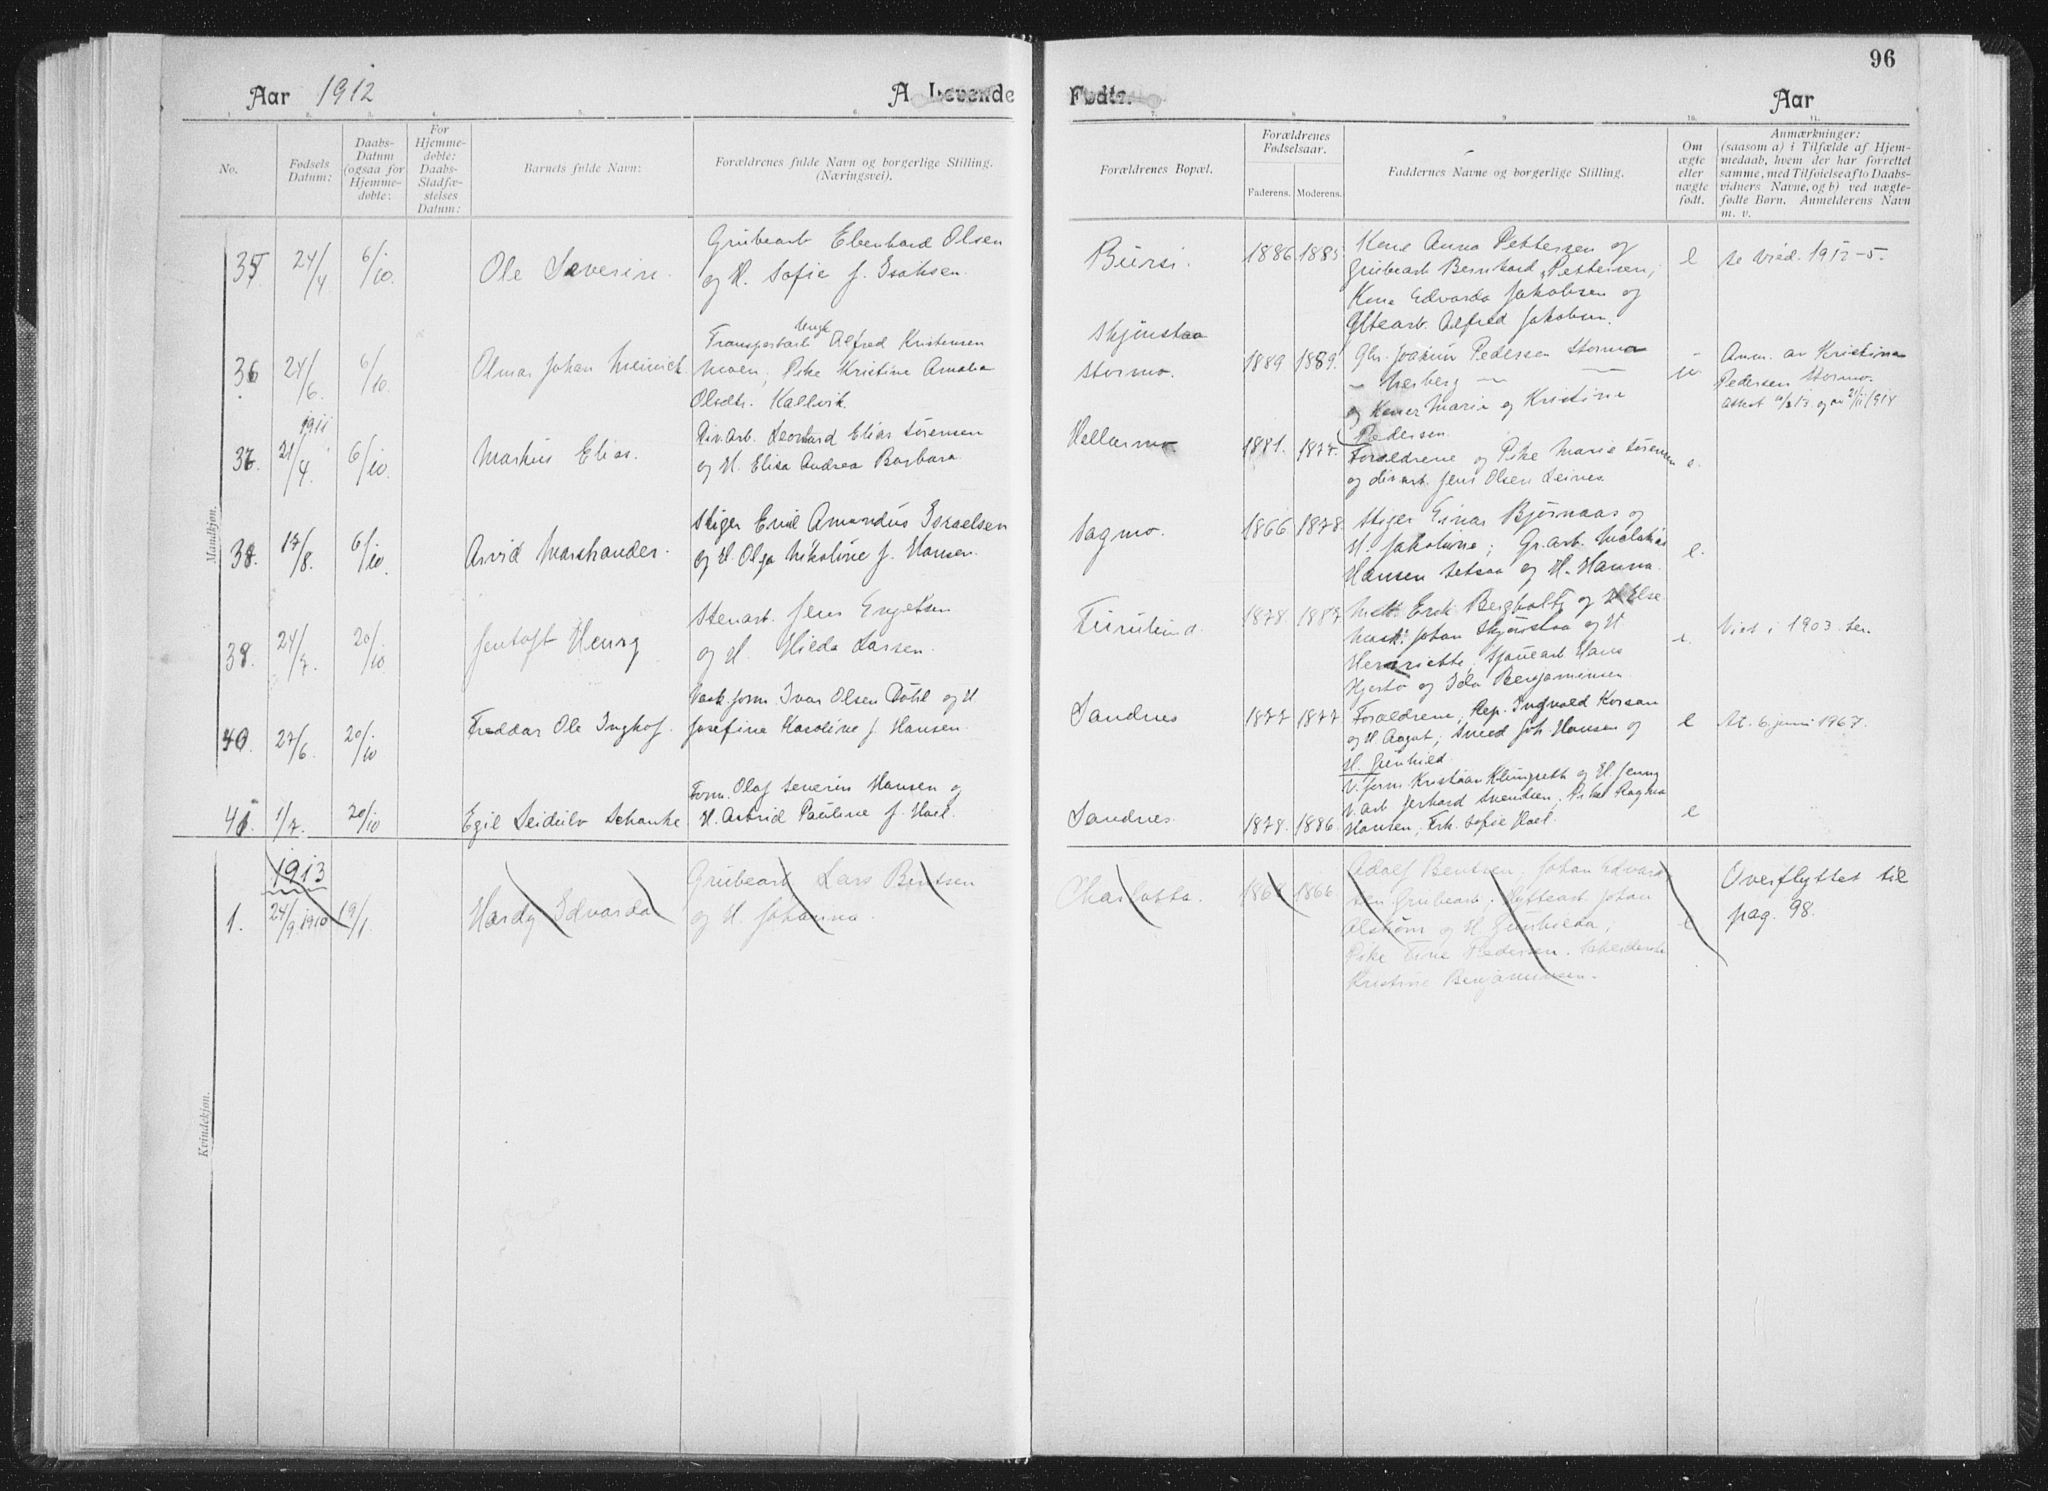 96
Aar 1912
A. Levende
Fødte.
Aar
1. 2. 3. 4. 5. 6. 7. 8. 9. 10. 11.
No.
Fødsels
Datum:
Daabs-
Datum
(ogsaa for
Hjemme-
døbte:
For
Hjemme-
døbte:
Daabs-
Stadfæ-
stelses
Datum:
Barnets fulde Navn:
Forældrenes fulde Navn og borgerlige Stilling.
(Næringsvei).
Forældrenes Bopæl.
Forældrenes
Fødselsaar.
Faderens. Moderens.
Faddernes Navne og borgerlige Stilling.
Om
ægte
eller
uægte
født.
Anmærkninger:
(saasom a) i Tilfælde af Hjem-
medaab, hvem der har forrettet
samme, med Tilføielse af to Daabs-
vidners Navne, og b) ved uægte-
fødte Børn. Anmelderens Navn
m. v.
Mandkjøn.
35. 24/4 6/10. Ole Severin.
Grubearb Eberhard Olsen
og H. Sofie f. Isaksen.
Bursi. 1886. 1885.
Kone Anna Pettersen og
Grubearb Bernhard Pettersen;
Kone Edvarda Jakobsen og
Hyttearb. Alfred Jakobsen.
e
36 24/6. 6/10. Olmar Johan Meinick
Ungk.
Transportarb Alfred Kristensen
Moen, Pike Kristine Amalia
Olsdtr. Kallvik.
Skjønstaa
Stormo. 1889 1889.
Gbr. Joakim Pedersen Stormo
og Koner Marie og Kristine
Pedersen.
Anm. av Kristina
Pedersen Stormo.
37. 1911 21/4 6/10. Markus Elias.
Div.arb. Leonhard Elias Sørensen
og H. Elisa Andrea Barbara.
Hellarmo 1881. 1877.
Forældrene og Pike Marie Sørensen
og div.arb. Jens Olsen Leines.
e.
38. 17/8. 6/10. Arvid Marshander.
Stiger Emil Amandus Israelsen
og H Olga Nikoline f. Hansen.
Sagmo. 1866 1878.
Stiger Einar Bjørnaas og
H. Jakobine; Gr.arb.
Hansen Setsaa og H. Hanna.
e.
24/7. 20/10 Jentoft Henry
Stenarb. Jens Engelsen
og H. Hilda Larsen.
Furulund. 1878. 1887.
Erik Bergholtz og H Else
Mask. Johan Skjønstaa og H
Henriette; Hans
Hjertø og Ida Benjaminsen
e.
Viet i 1903
40. 27/6. 20/10 Freddar Ole Inghof.
Vask.form. Ivar Olsen Døhl og H
Josefine Karoline f. Hansen.
Sandnes 1877 1877.
Forældrene, Rep. Ingvald Korsan
og H Aagot; Smed Joh. Hansen og
H. Gunhild
e
At. 6. juni 1967.
41. 1/7. 20/10 Egil Seidulv Schanke
Form. Olaf Severin Hansen og
H. Astrid Pauline f. Hoel.
Sandnes. 1878. 1886.
V. form Kristian Klungseth og H. Jenny
V. arb Gerhard Svendsen; Pike Ragna
Hansen; Frk. Sofie Hoel.
e
Kvindekjøn.
1913
1. 24/9 1910 19/1. Hardy Edvarda
Grubearb Lars Bentsen
og H. Johanna.
Charlotta. 1864 1866
Adolf Bentsen, Johan Edvard-
sen Grubearb; Hyttearb Johan
Alstrøm og H Gunhilda;
Pike Tine Pedersen.
Kristine Benjaminsen.
e
Overflyttet til
pag. 98.